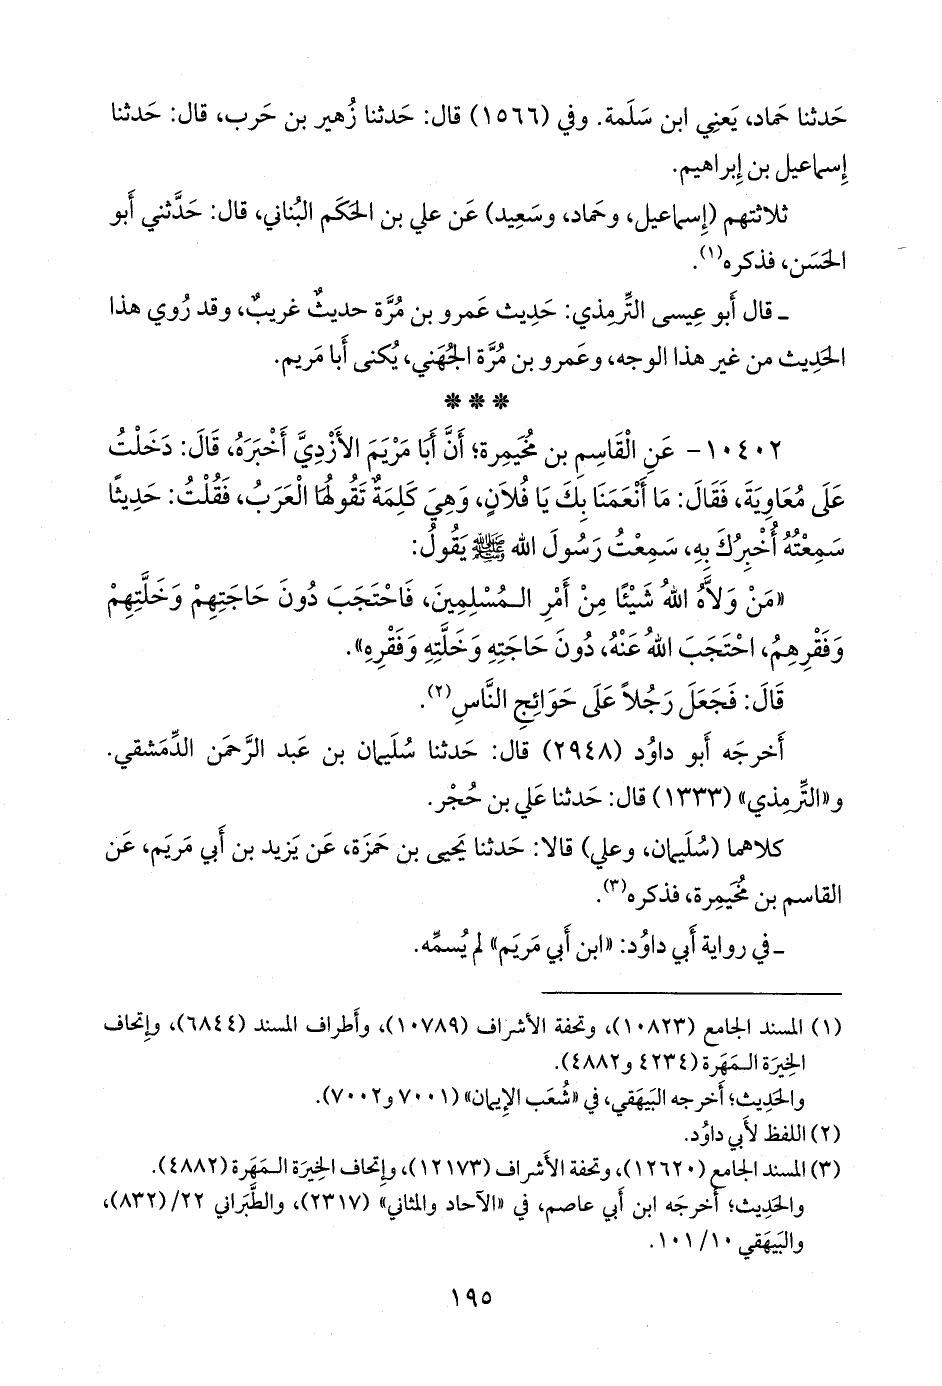 حَدثنا حَماد، يَعنِي ابن سَلَمة. وفي (١٥٦٦) قال: حَدثنا زُهير بن حَرب، قال: حَدثنا
إِسماعيل بن إِبراهيم.
ثلاثتهم (إِسماعيل، وحَماد، وسَعِيد) عَن علي بن الحَكَم البُناني، قال: حَدَّثني أَبو
الحَسَن، فذكره(١).
ـ قال أَبو عِيسى التِّرمِذي: حَدِيث عَمرو بن مُرَّة حديثٌ غريبٌ، وقد رُوي هذا
الحَدِيث من غير هذا الوجه، وعَمرو بن مُرَّة الجُهَني، يُكنى أَبا مَريم.
* * *
١٠٤٠٢- عَنِ الْقَاسِمِ بن مُخَيمِرة؛ أَنَّ أَبَا مَرْيَمَ الأَزْدِيَّ أَخْبَرَهُ، قَالَ: دَخَلْتُ
عَلَى مُعَاوِيَةَ، فَقَالَ: مَا أَنْعَمَنَا بِكَ يَا فُلاَنٍ، وَهِيَ كَلِمَةٌ تَقُولُهَا الْعَرَبُ، فَقُلْتُ: حَدِيثًا
سَمِعْتُهُ أُخْبِرُكَ بِهِ، سَمِعْتُ رَسُولَ الله ﷺ يَقُولُ:
«مَنْ وَلاَّهُ اللهُ شَيْئًا مِنْ أَمْرِ الـمُسْلِمِينَ، فَاحْتَجَبَ دُونَ حَاجَتِهِمْ وَخَلَّتِهِمْ
وَفَقْرِهِمُ، احْتَجَبَ اللهُ عَنْهُ، دُونَ حَاجَتِهِ وَخَلَّتِهِ وَفَقْرِهِ».
قَالَ: فَجَعَلَ رَجُلاً عَلَى حَوَائِجِ النَّاسِ(٢).
أَخرجَه أَبو داوُد (٢٩٤٨) قال: حَدثنا سُلَيمان بن عَبد الرَّحمَن الدِّمَشقي.
و«التِّرمِذي» (١٣٣٣) قال: حَدثنا عَلي بن حُجْر.
كلاهما (سُلَيمان، وعلي) قالا: حَدثنا يَحيى بن حَمزَة، عَن يَزيد بن أَبي مَريَم، عَن
القاسم بن مُخَيمِرة، فذكره(٣).
ـ في رواية أَبي داوُد: «ابن أَبي مَريَم» لم يُسمِّه.
(١) المسند الجامع (١٠٨٢٣)، وتحفة الأَشراف (١٠٧٨٩)، وأَطراف المسند (٦٨٤٤)، وإِتحاف
الخِيرَة الـمَهَرة (٤٢٣٤ و٤٨٨٢).
والحَدِيث؛ أَخرجه البَيهَقي، في «شُعَب الإِيمان» (٧٠٠١ و٧٠٠٢).
(٢) اللفظ لأَبي داوُد.
(٣) المسند الجامع (١٢٦٢٠)، وتحفة الأَشراف (١٢١٧٣)، وإِتحاف الخِيرَة الـمَهَرة (٤٨٨٢).
والحَدِيث؛ أَخرجَه ابن أَبي عاصم، في «الآحاد والمثاني» (٢٣١٧)، والطَّبَراني ٢٢/ (٨٣٢)،
والبَيهَقي ١٠/ ١٠١.
١٩٥